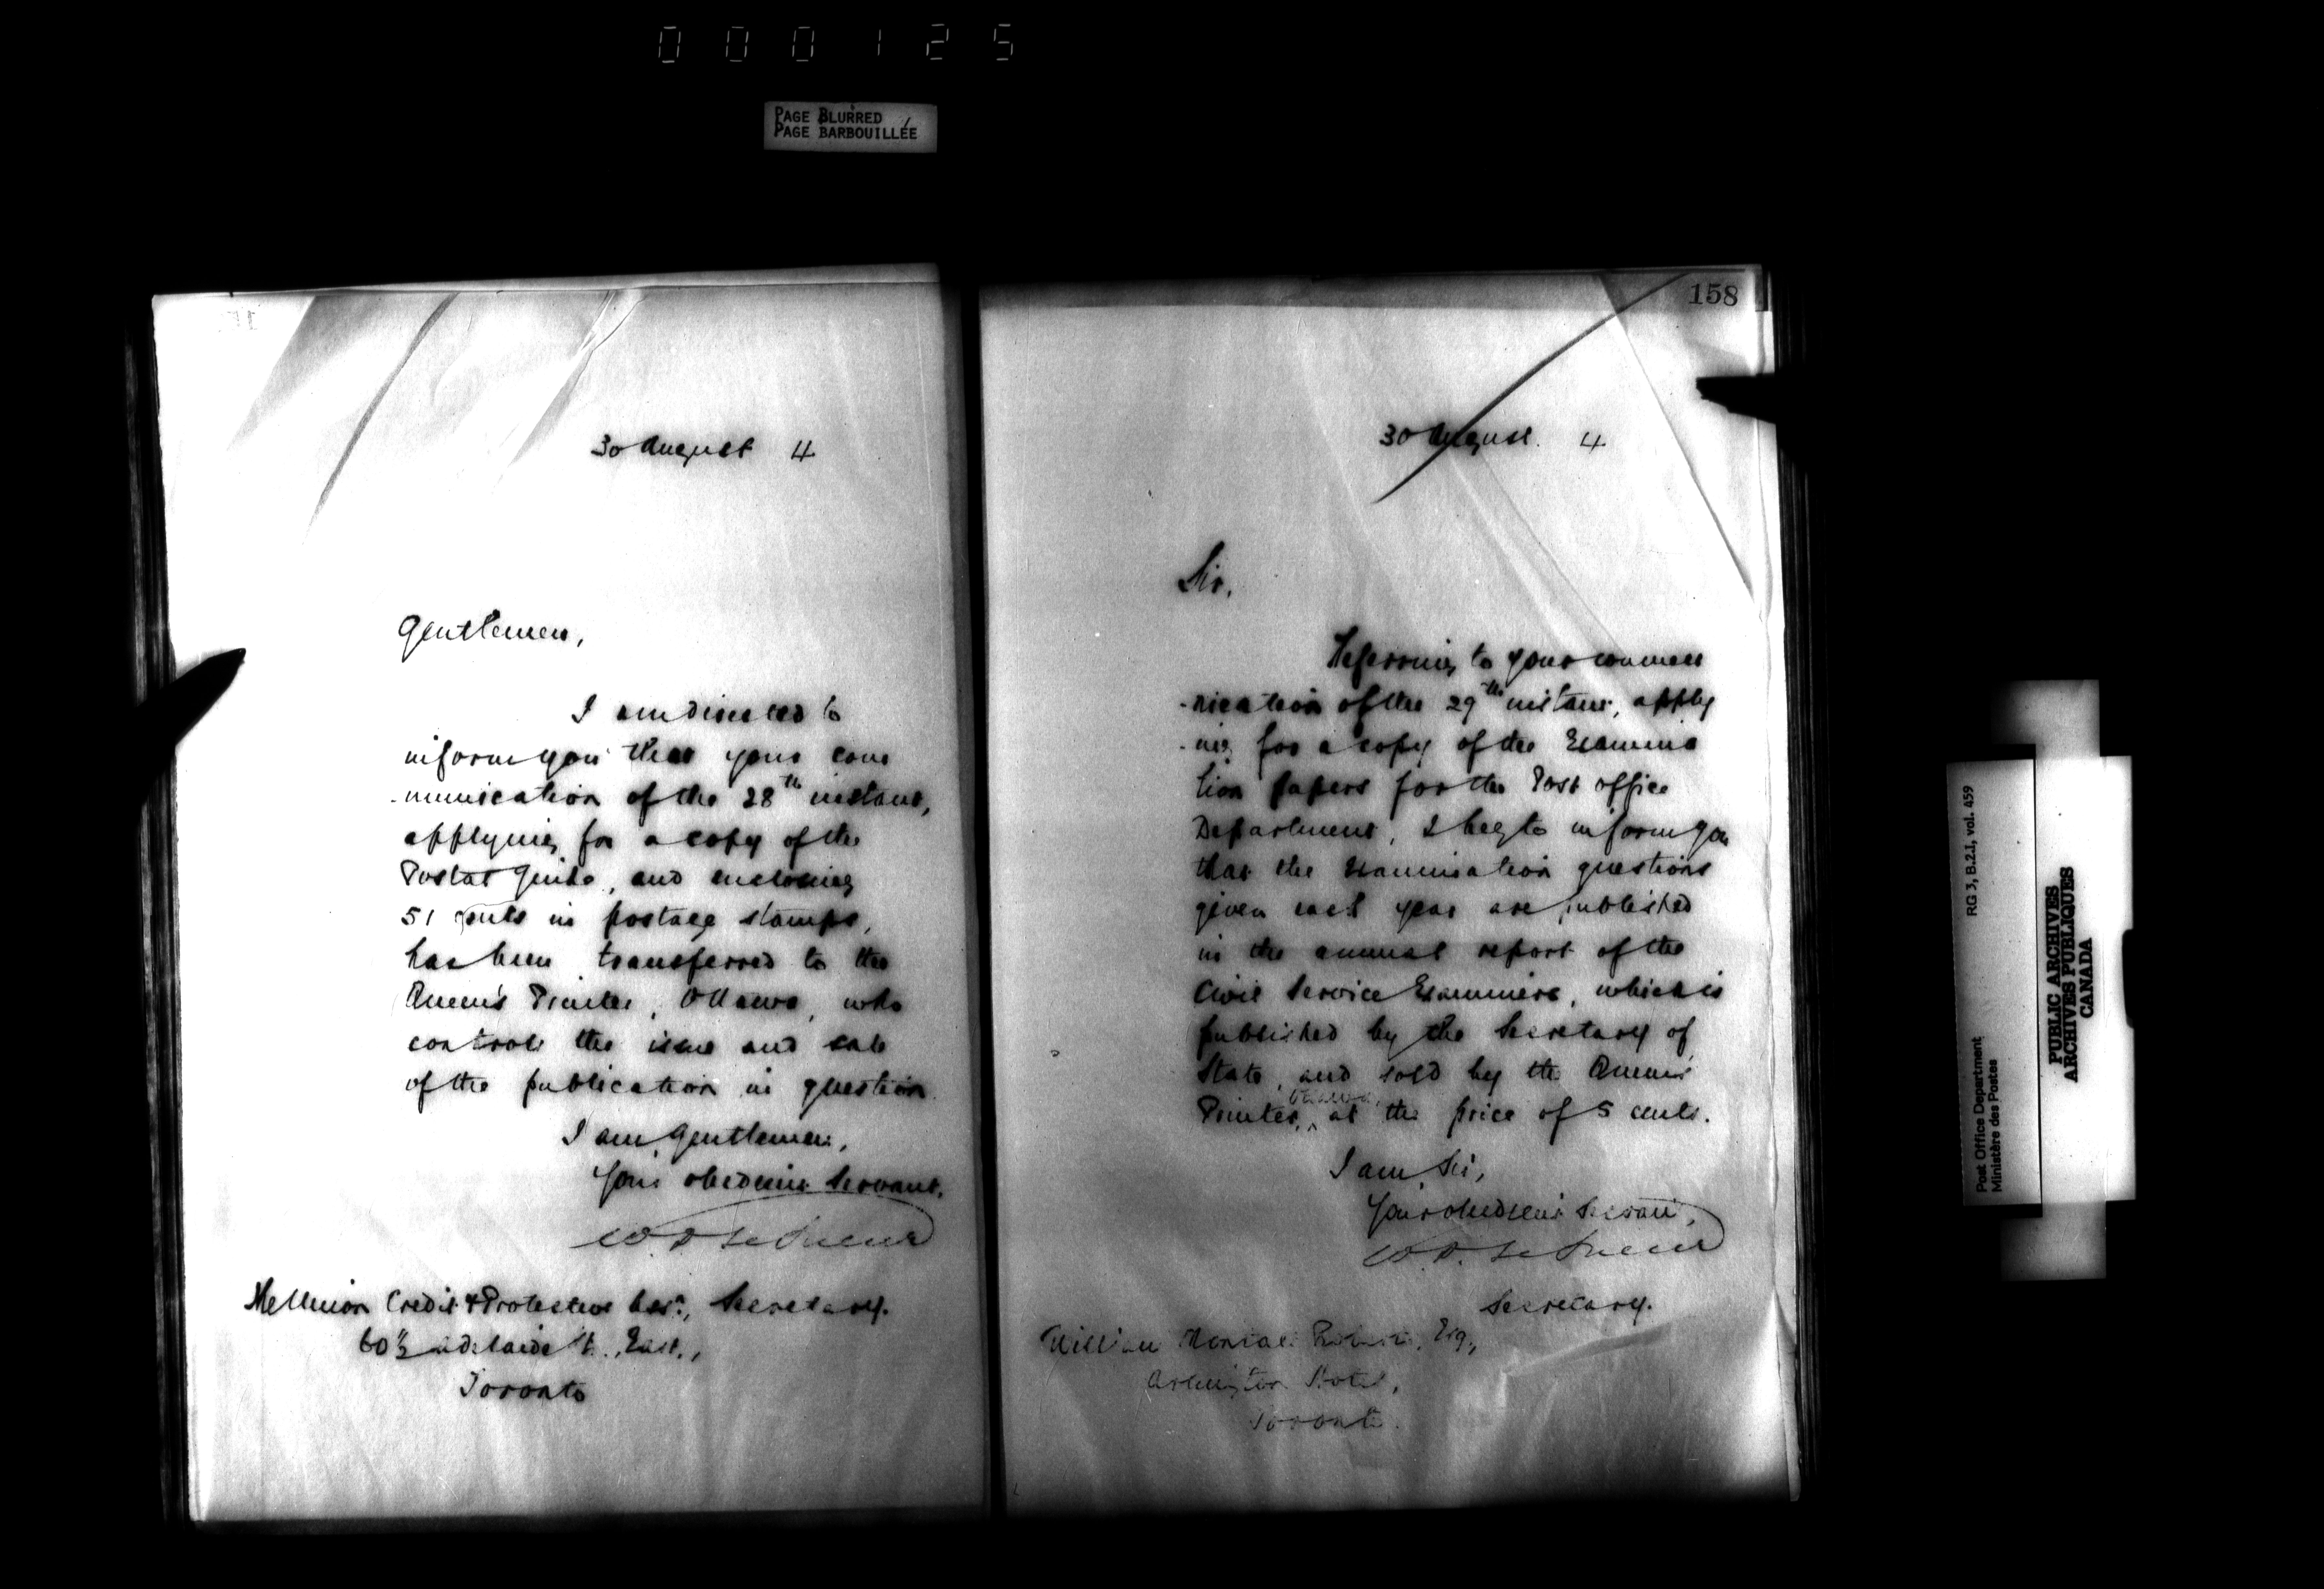 000125
PAGE BLURRED
PAGE BARBOUILLÉE
30 August 4
Gentlemen,
I am directed to
inform you that your com
-munication of the 28th instant,
applying for a copy of the
Postal Guide, and enclosing
51 cents in postage stamps,
has been transferred to the
Queen's Printer, Ottawa, who
controls the issue and sale
of the publication in question.
I am, Gentlemen,
Your obedient Servant,
W. D. LeSueur
Secretary.
The Union Credit & Protective Assn.,
60½ Adelaide St. East,
Toronto
158
30 August. 4
Sir,
Referring to your commu
-nication of the 29th instant, apply
-ing for a copy of the Examina
tion papers for the Post Office
Department, I beg to inform you
that the Examination questions
given each year are published
in the annual report of the
Civil Service Examiners, which is
published by the Secretary of
State, and sold by the Queen's
Printer, Ottawa, at the price of 5 cents.
I am, Sir,
Your obedient Servant,
W. D. LeSueur
Secretary.
William Esq.,
Arlington Hotel,
Toronto.
Post Office Department
Ministère des Postes
RG 3, B.2.I, vol. 459
PUBLIC ARCHIVES
ARCHIVES PUBLIQUES
CANADA